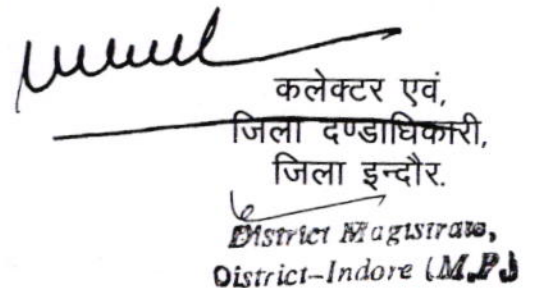 कलेक्टर एवं,
जिला दण्डाधिकारी,
जिला इन्दौर.
District Magistrate,
District-Indore (M.P.)